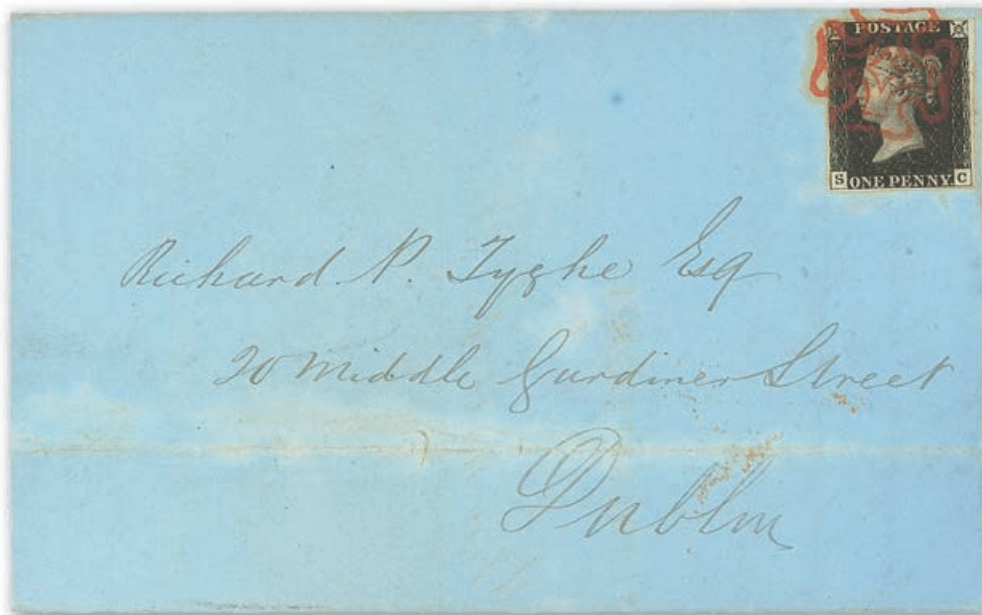 POSTAGE
S ONE PENNY. C
Richard P. Tyghe Esq
20 Middle Gardiner Street
Dublin